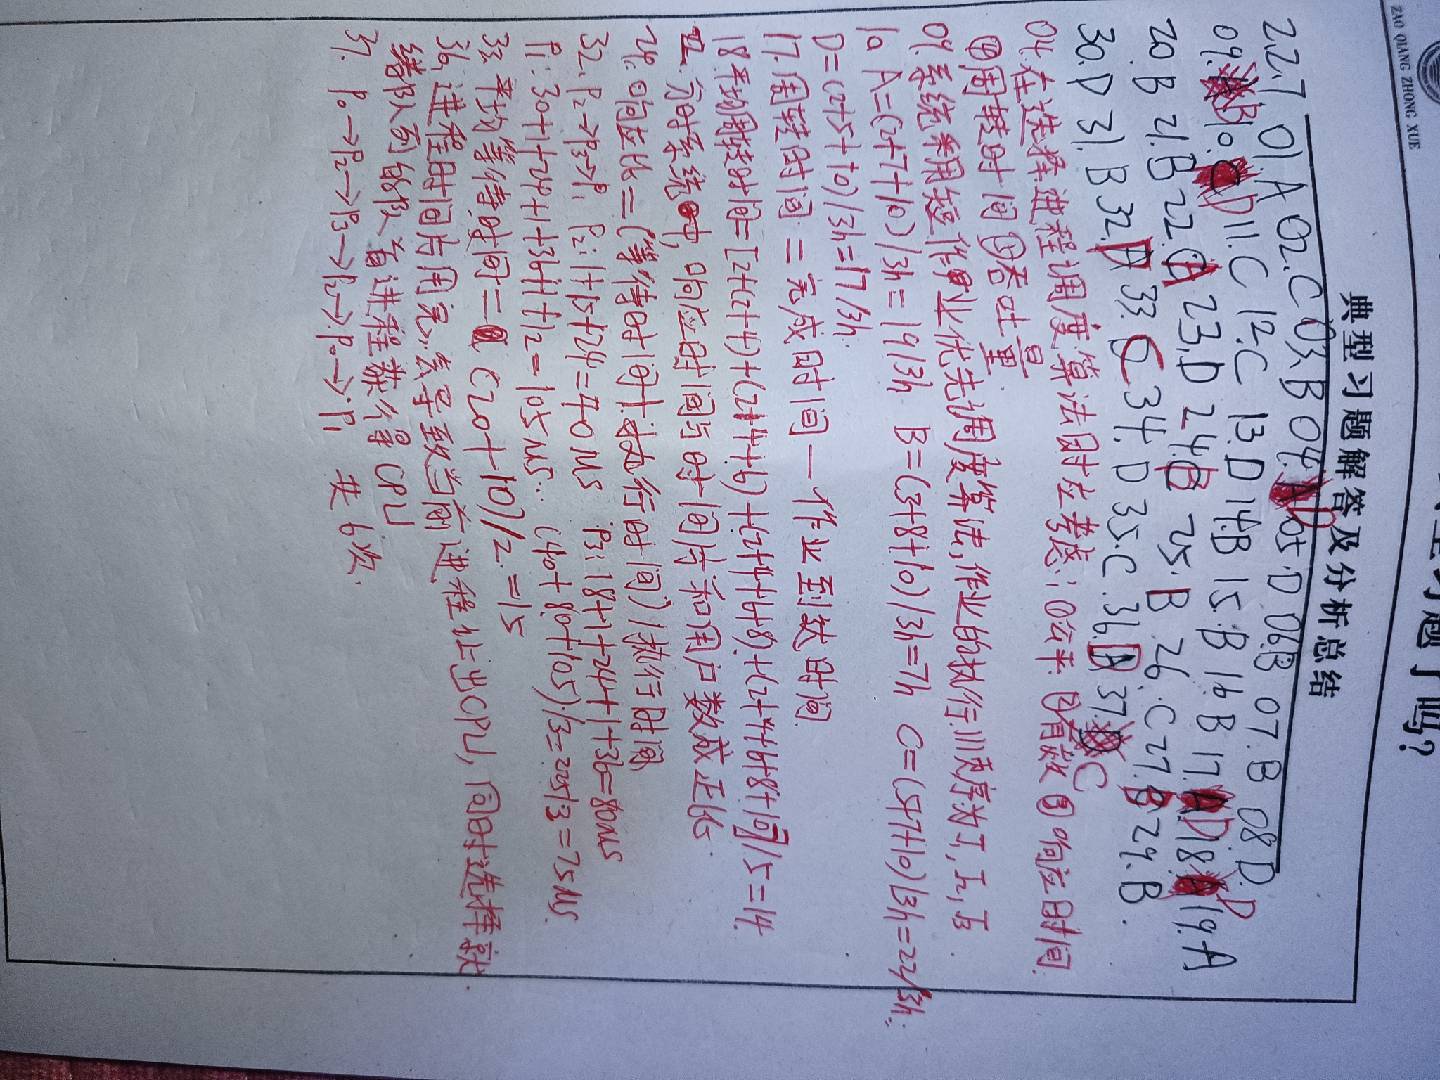 型习题了吗?
ZAO QIANG ZHONG XUE
典型习题解答及分析总结
2.2.7. 01.A 02.C 03.B 04.D 05.D 06.B 07.B 08.D.
09.B 10.D 11.C 12.C 13.D 14.B 15.B 16.B 17.D 18.D 19.A
20.B 21.B 22.A 23.D 24.B 25.B 26.C 27.B 29.B.
30.D 31.B 32.D 33.C 34.D 35.C. 36.D 37.C
04.在选择进程调度算法时应考虑:①公平. ②有效 ③响应时间.
④周转时间⑤吞吐量.
09.系统采用短作业优先调度算法,作业的执行顺序为J1,J2,J3.
10 A=(2+7+10)/3h=19/3h B=(3+8+10)/3h=7h C=(5+7+10)/3h=22/3h.
D=(2+5+10)/3h=17/3h.
17.周转时间=完成时间—作业到达时间.
18.平均周转时间=[2+(2+4)+(2+4+6)+(2+4+6+8)+(2+4+6+8+10)]/5=14.
22.分时系统中,响应时间与时间片和用户数成正比.
24.响应比=(等待时间+执行时间)/执行时间
32.P2→P3→P1 P2:1+15+24=40μs P3:18+1+24+1+36=80μs
P1:30+1+24+1+36+1+12=105μs... (40+80+105)/3=225/3=75μs.
33.平均等待时间=(20+10)/2.=15
36.进程时间片用完,会导致当前进程让出CPU,同时选择就
绪队列的队首进程获得CPU.
37. P0→P2→P3→P2→P0→P1 共6次.